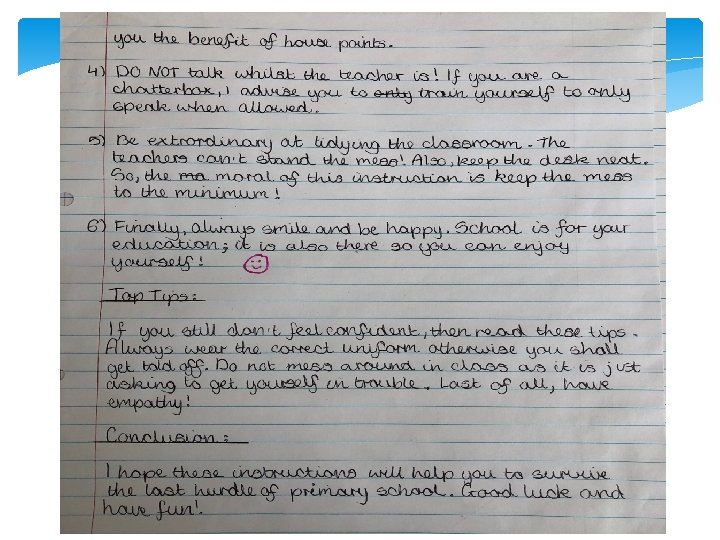 you the benefit of house points.
4) DO NOT talk whilst the teacher is! If you are a
chatterbox, I advise you to only train yourself to only
speak when allowed.
5) Be extrordinary at tidying the classroom. The
teachers can't stand the mess! Also, keep the desk neat.
So, the ma moral of this instruction is keep the mess
to the minimum!
6) Finally, always smile and be happy. School is for your
education; it is also there so you can enjoy
yourself!
Top Tips:
If you still don't feel confident, then read these tips.
Always wear the correct uniform otherwise you shall
get told off. Do not mess around in class as it is just
asking to get yourself in trouble. Last of all, have
empathy!
Conclusion:
I hope these instructions will help you to survive
the last hurdle of primary school. Good luck and
have fun!